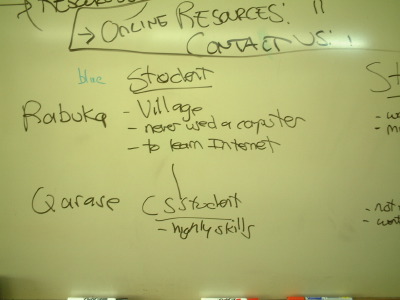 → ONLINE RESOURCES:
CONTACT US:
blue Student
Rabuka - Village
- never used a computer
- to learn Internet
Qarase CS student
- highly skills